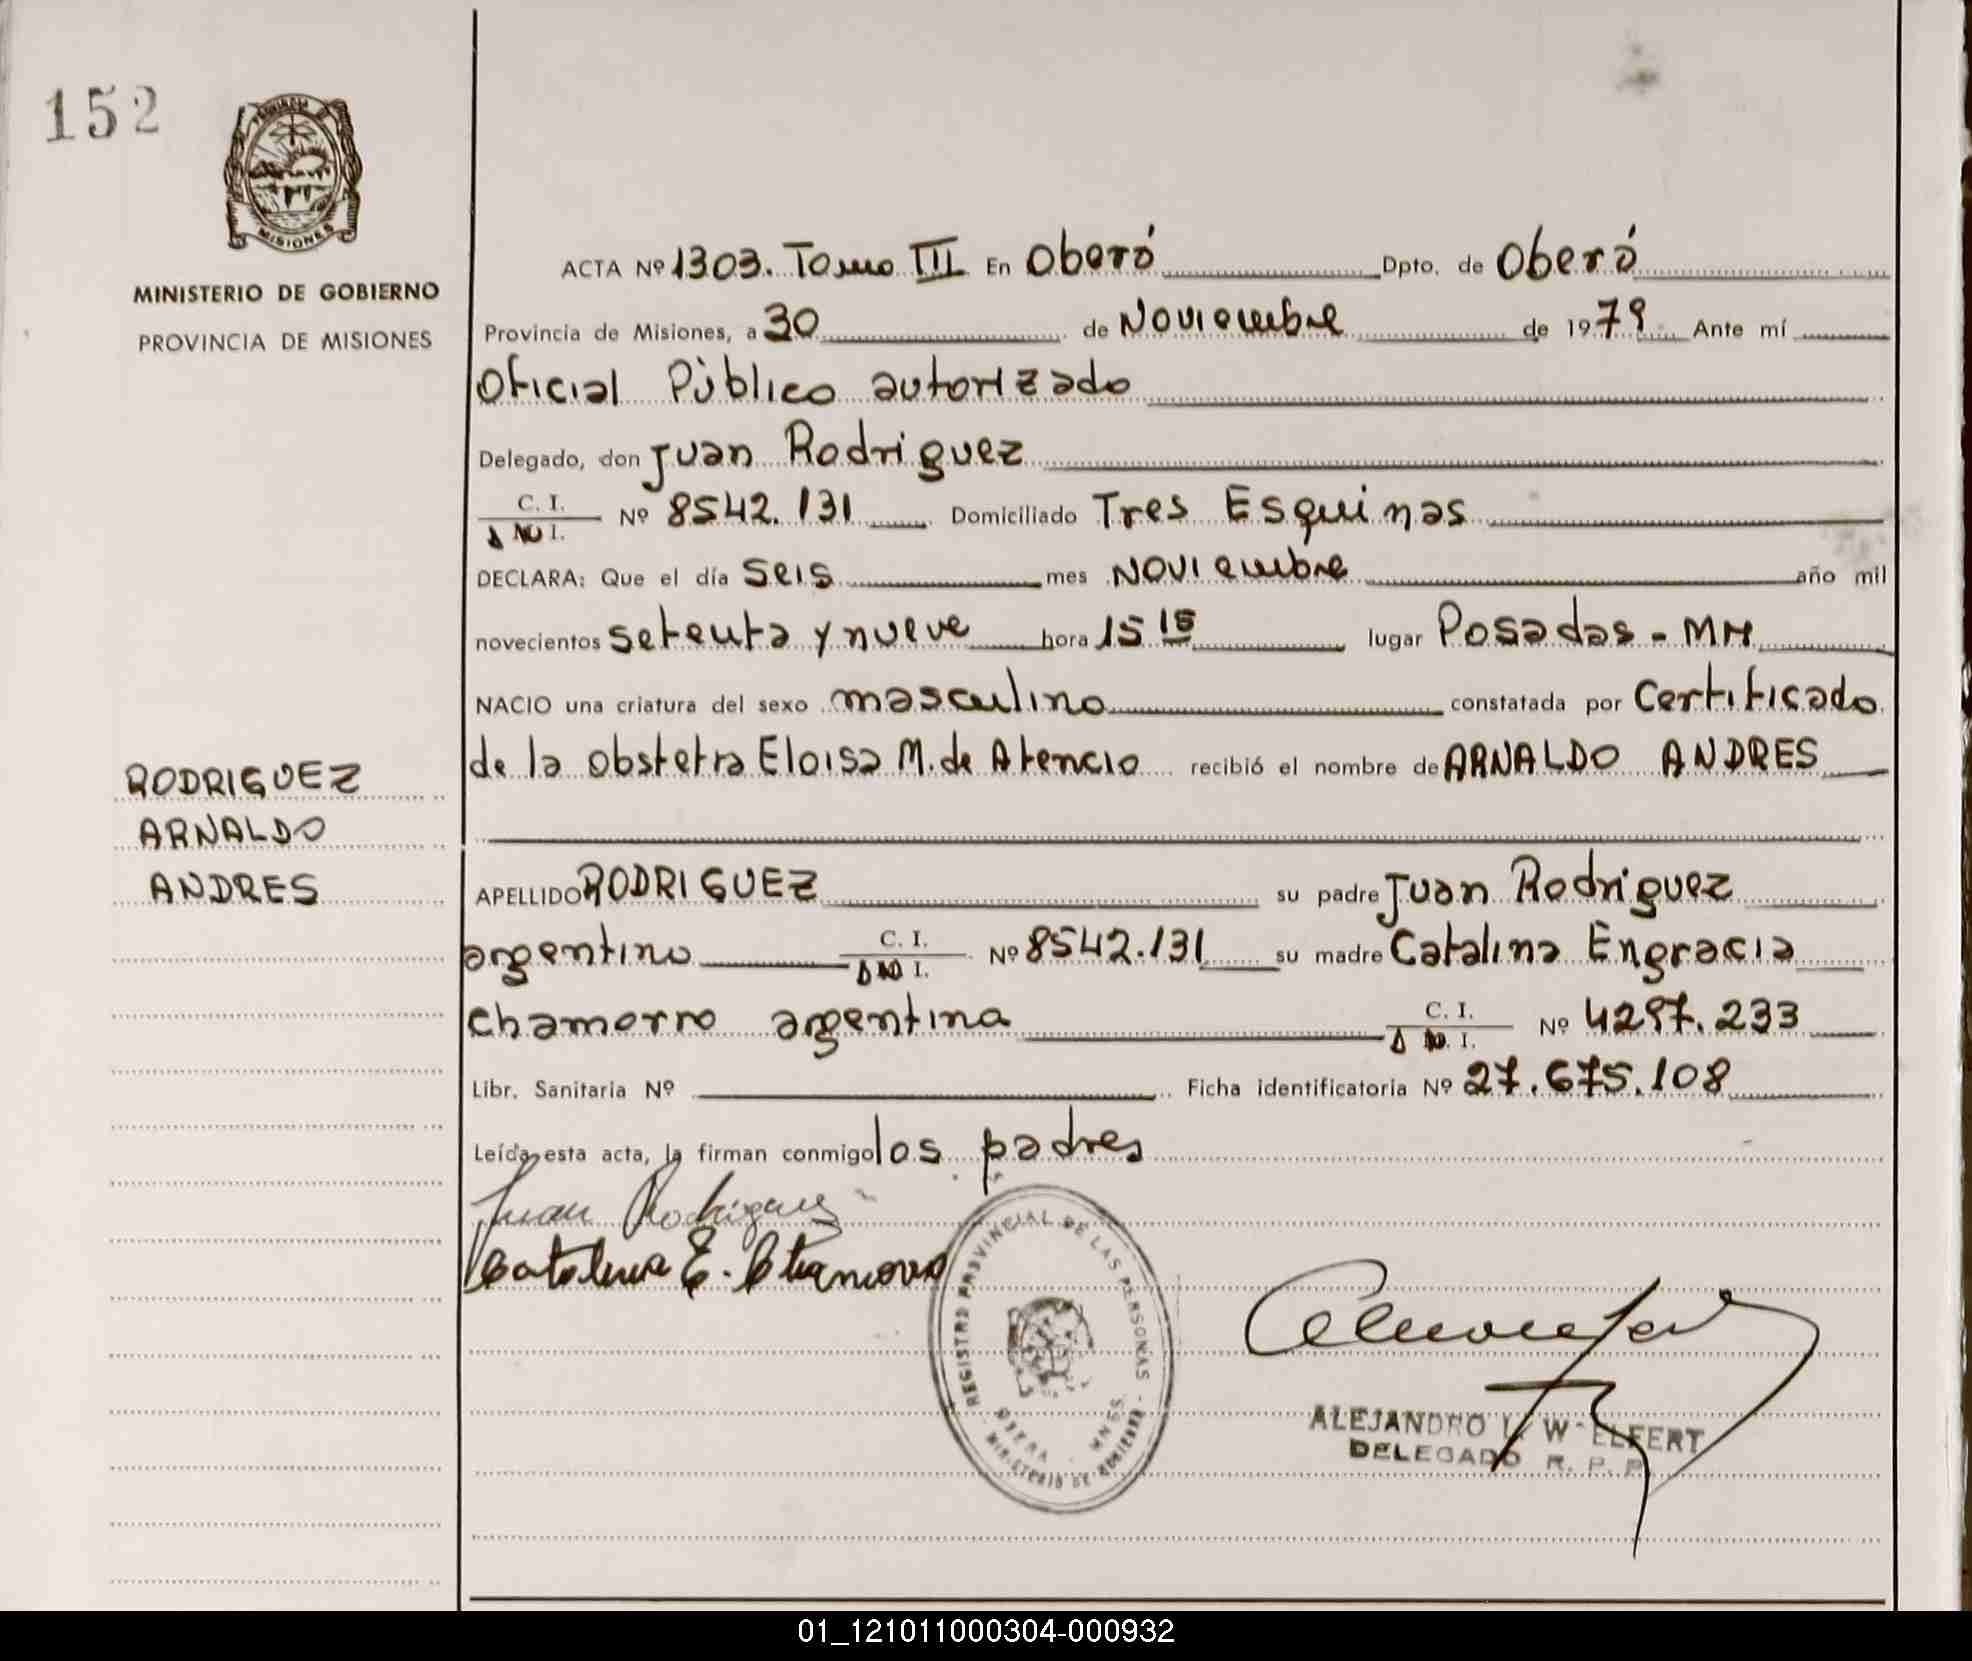 152
PROVINCIA D
MISIONES
MINISTERIO DE GOBIERNO
PROVINCIA DE MISIONES
ACTA Nº 1303. Tomo III En Oberá Dpto. de Oberá
Provincia de Misiones, a 30 de Noviembre de 1979 Ante mí
Oficial Público autorizado
Delegado, don Juan Rodriguez
C. I.
D N I. Nº 8542.131 Domiciliado Tres Esquinas
DECLARA: Que el día seis mes Noviembre año mil
novecientos setenta y nueve hora 15 15 lugar Posadas - MM
NACIO una criatura del sexo masculino constatada por Certificado
de la obstetra Eloisa M. de Atencio recibió el nombre de ARNALDO ANDRES
RODRIGUEZ
ARNALDO
ANDRES
APELLIDO RODRIGUEZ su padre Juan Rodriguez
argentino C. I.
D N I. Nº 8542.131 su madre Catalina Engracia
Chamorro argentina C. I.
D N. I. Nº 4297.233
Libr. Sanitaria Nº Ficha identificatoria Nº 27.675.108
Leída esta acta, la firman conmigo los padres
Juan Rodriguez
Catalina E. Chamorro
REGISTRO PROVINCIAL DE LAS PERSONAS
OBERA MNES.
MINISTERIO DE GOBIERNO
ALEJANDRO
DELEGADO R. P. P.
01_121011000304-000932